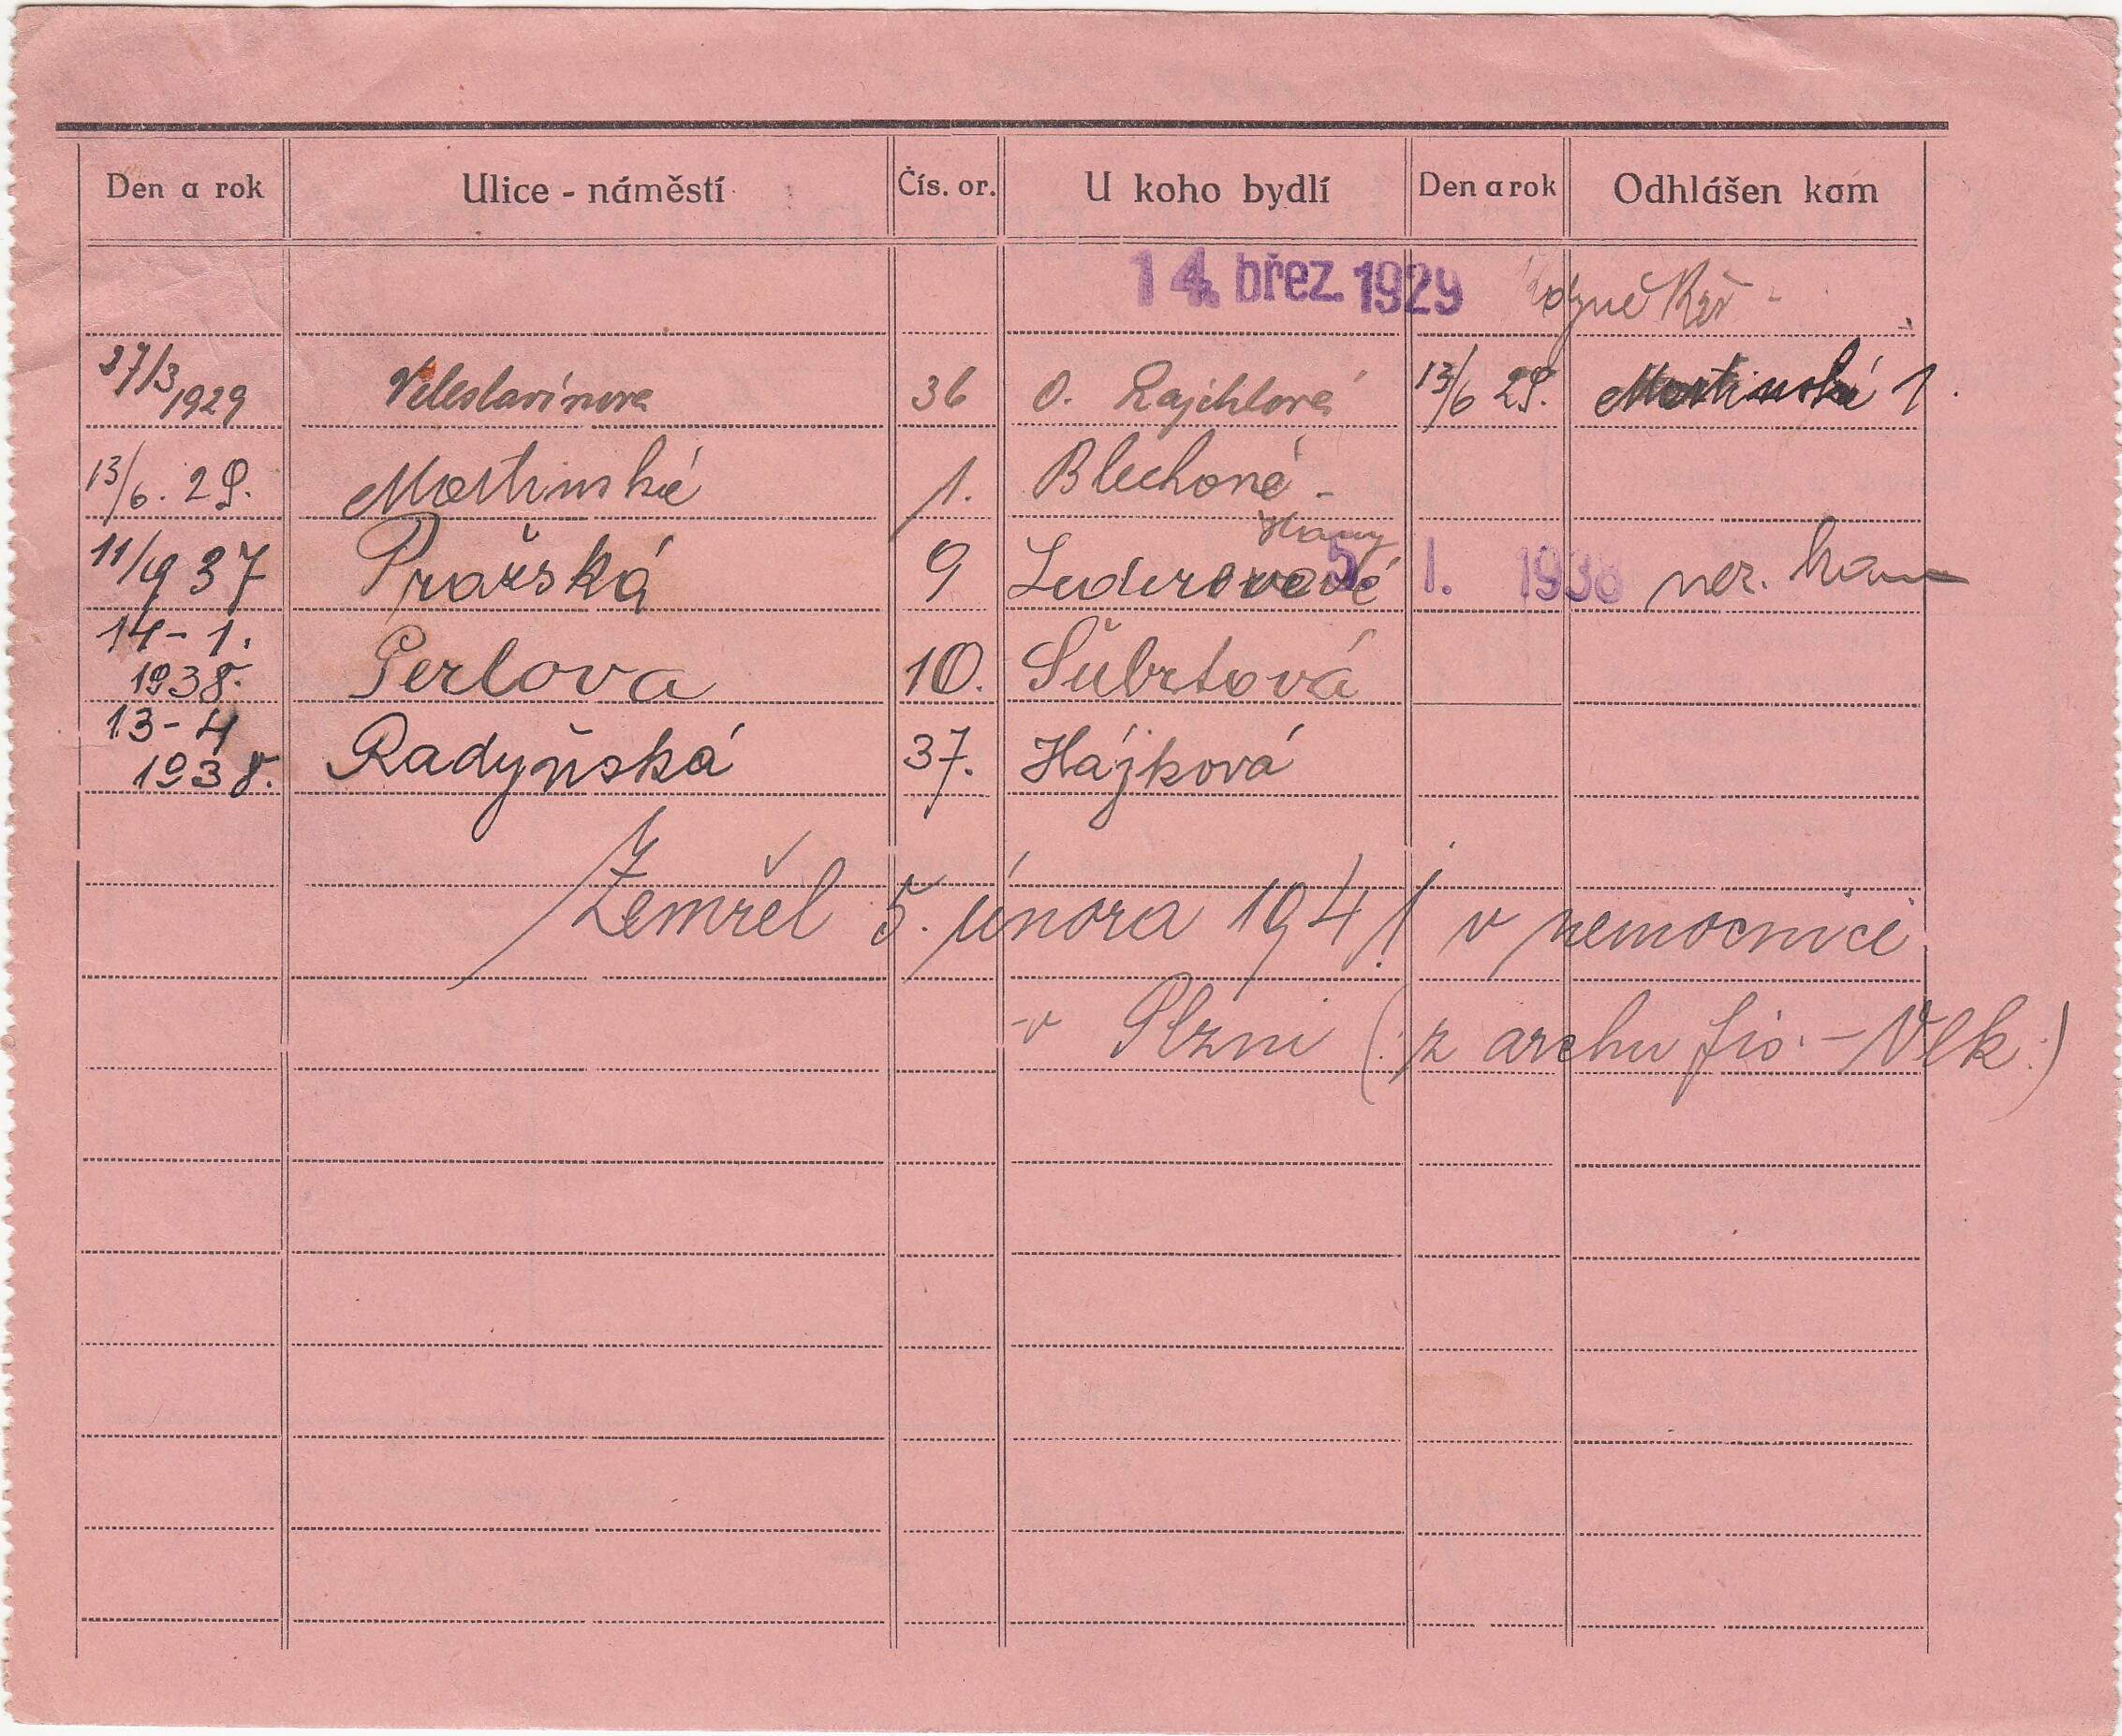 Den a rok Ulice - náměstí Čís. or. U koho bydlí Den a rok Odhlášen kam
14. břez. 1929
27/3 1929 Veleslavínova 36 O. Rajchlová 13/6 29. Martinská 1.
13/6. 29. Martinská 1. Blechové -
Hany
11/9 37 Pražská 9 Luderové 5. 1. 1938 nez. kam
14-1. 1938. Perlova 10. Šubrtová
13-4 1938. Radyňská 37. Hájková
Zemřel 5. února 1941 v nemocnici
v Plzni (: z archu fio. - Vlk :)